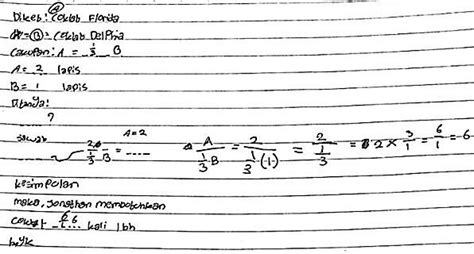 Diket: (A) Coklab Florida
(B) = Coklab Delphia
Cakupan: A = 1/3 B
A = 2 lapis
B = 1 lapis
Ditanya:
?
Jawab A=2
2A / 1/3 B = ---- A / 1/3 B = 2 / 1/3 (1) = 2 / 1/3 = 2 × 3/1 = 6/1 = 6
kesimpolan
maka, Jonathan membotuhkan
Coklat 6 kali lbh
bnyk